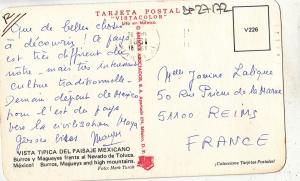 TARJETA POSTAL
"VISTACOLOR"
Que de belles choses
à découvrir, ce pays
est très différent du
notre - mais très intéressant
culture traditionnelle -
Demain départ de Mexico
pour l'est du pays
vers la civilisation Maya
grosses bises
V226
Melle Janine Labigue
50 Rue Prieur de la Marne
51100 REIMS
FRANCE
VISTA TIPICA DEL PAISAJE MEXICANO
Burros y Magueyes frente al Nevado de Toluca.
México! Burros, Magueys and high mountains.
Foto: Mark Turok
(Colecciones Tarjetas Postales)